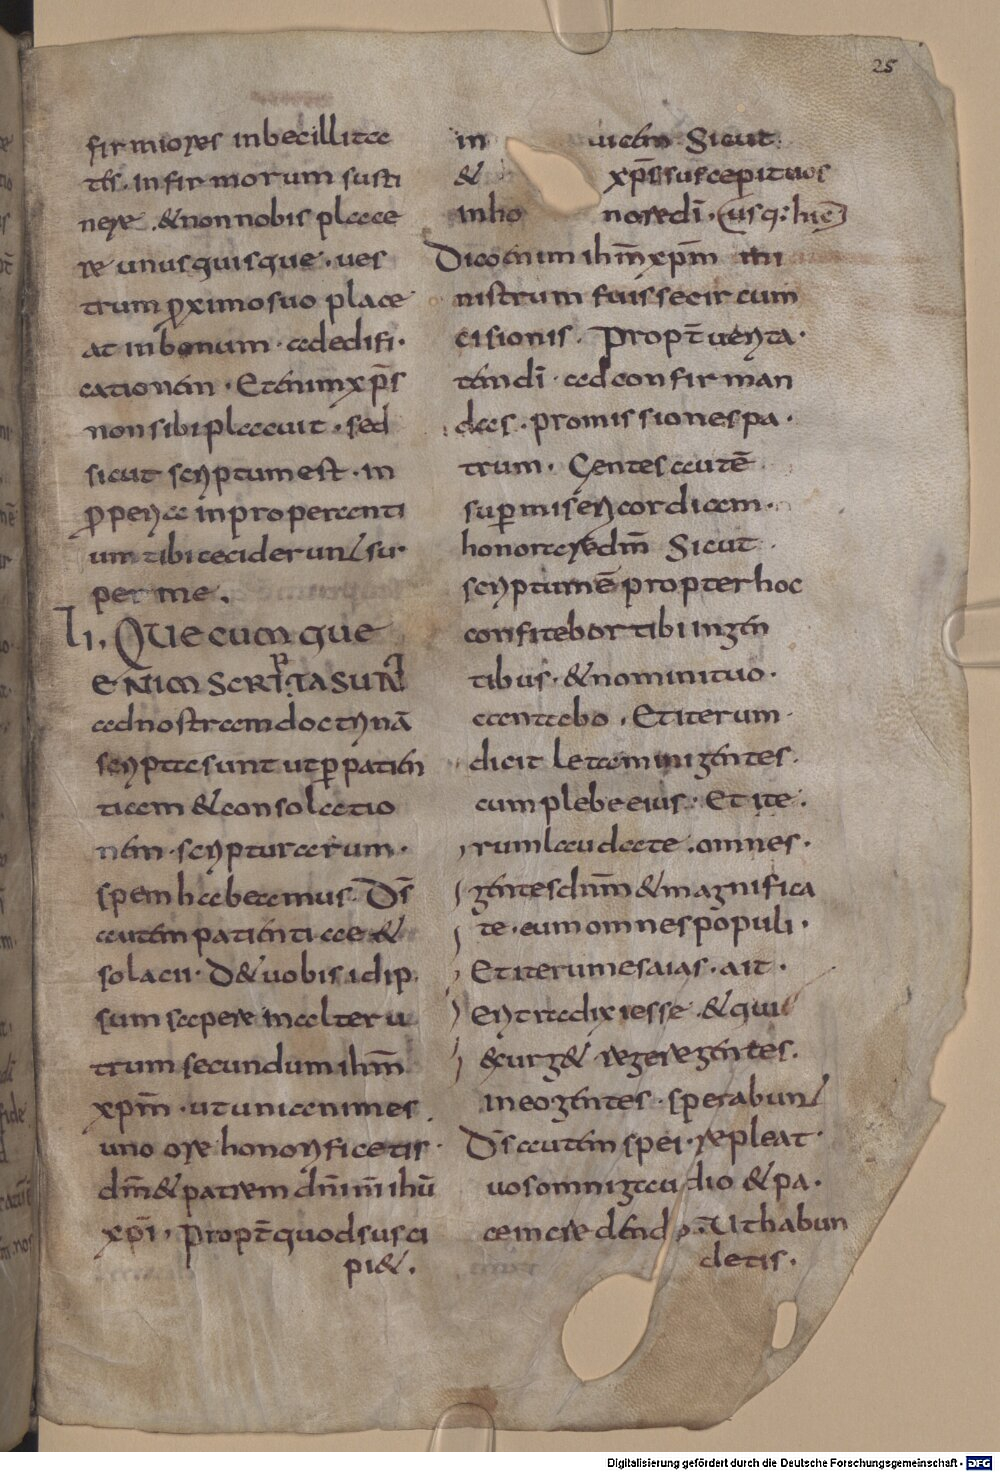 25
firmiores inbecillita
tes. infirmorum susti
nere. & non nobis place
re unusquisque. ues
trum proximo suo place
at in bonum. ad edifi.
cationem. Etenim xp̄s
non sibi placuit. sed
sicut scriptum est. in
properia inproperanti
um tibi ceciderunt su.
per me.
II. Quecumque
enim scripta sunt
ad nostram doctrinā
scripta sunt ut p̱ patien
tiam & consolatio
nem. scripturarum.
spem habeamus. Ds̄
autem patientiae &
solacii. D& uobis idip
sum sapere in alteru
trum secundum ihm̄
xpm̄. ut unianimes
uno ore honorificetis.
dm̄ & patrem dn̄i nr̄i ihū
xp̄i. Propt̄ quod susci
pi&.
in uicem Sicut
& xp̄s suscepit uos
inho nore dī. usq: hic
Dico enim ihm̄ xpm̄ mi
nistrum fuisse circum
cisionis. Propt̄ uerita.
tem dī. ad confirman
das. promissiones pa.
trum. Gentes autē
sup̱ misericordiam.
honorare dm̄ Sicut
scriptum ē propter hoc
confitebor tibi in gen
tibus. & nomini tuo.
cantabo. Et iterum
dicit Letamini gentes.
cum plebe eius. Et ite.
rum laudate. omnes.
gentes dnm̄ & magnifica
te. eum omnes populi.
Et iterum esaias. ait.
Erit radix iesse. & qui
exurg& regere gentes.
in eo gentes. sperabunt
Ds̄ autem spei. repleat
uos omni gaudio & pa.
ce in credendo. Ut habun
detis.
Digitalisierung gefördert durch die Deutsche Forschungsgemeinschaft - DFG